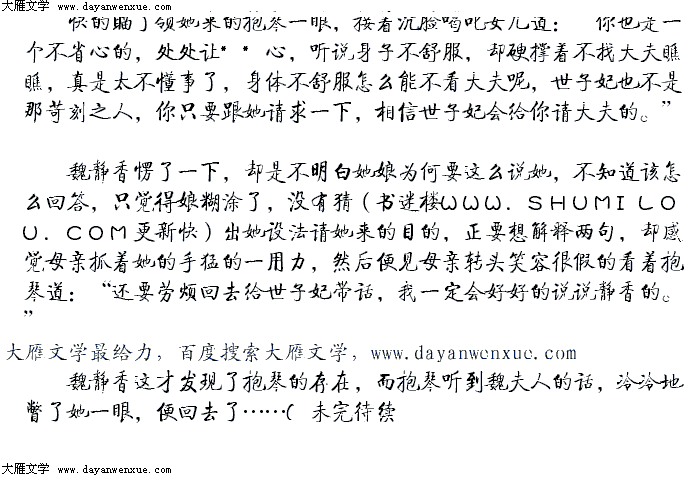 大雁文学 www.dayanwenxue.com
快的瞄了领她来的抱琴一眼，接着沉脸喝叱女儿道： 你也是一
个不省心的，处处让**心，听说身子不舒服，却硬撑着不找大夫瞧
瞧，真是太不懂事了，身体不舒服怎么能不看大夫呢，世子妃也不是
那苛刻之人，你只要跟她请求一下，相信世子妃会给你请大夫的。”
魏静香愣了一下，却是不明白她娘为何要这么说她，不知道该怎
么回答，只觉得娘糊涂了，没有猜（书迷楼ＷＷＷ．ＳＨＵＭＩＬＯ
Ｕ．ＣＯＭ更新快）出她设法请她来的目的，正要想解释两句，却感
觉母亲抓着她的手猛的一用力，然后便见母亲转头笑容很假的看着抱
琴道：“还要劳烦回去给世子妃带话，我一定会好好的说说静香的。
”
大雁文学最给力，百度搜索大雁文学，www.dayanwenxue.com
魏静香这才发现了抱琴的存在，而抱琴听到魏夫人的话，冷冷地
瞥了她一眼，便回去了……( 未完待续
大雁文学 www.dayanwenxue.com